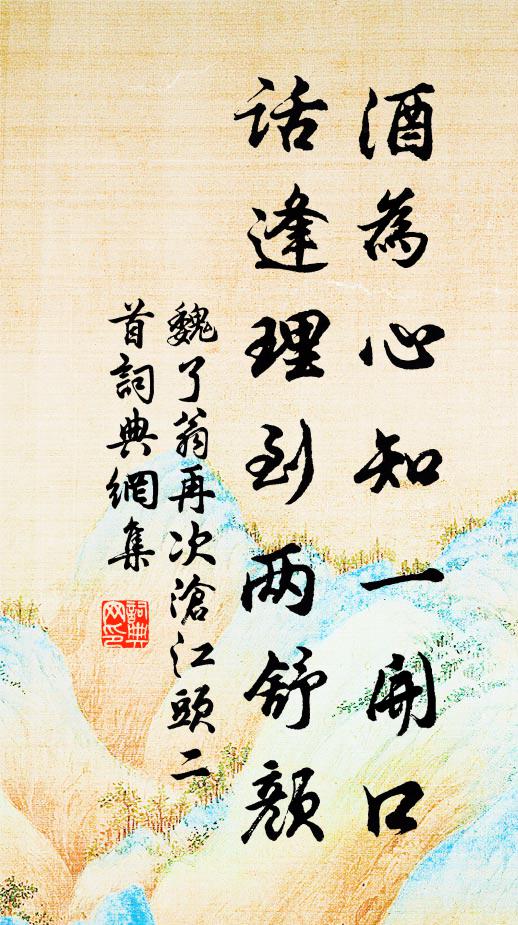 酒為心知一開口
话逢理到两舒顏
魏了翁再次滄江頭二
首詞典網集
詞典
网印